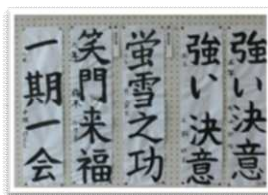 強い決意
強い決意
蛍雪之功
笑門来福
一期一会